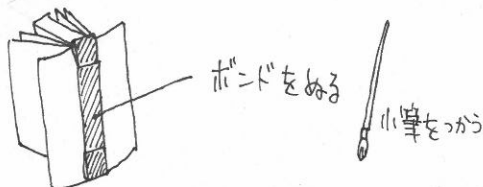 ボンドをぬる
小筆をつかう